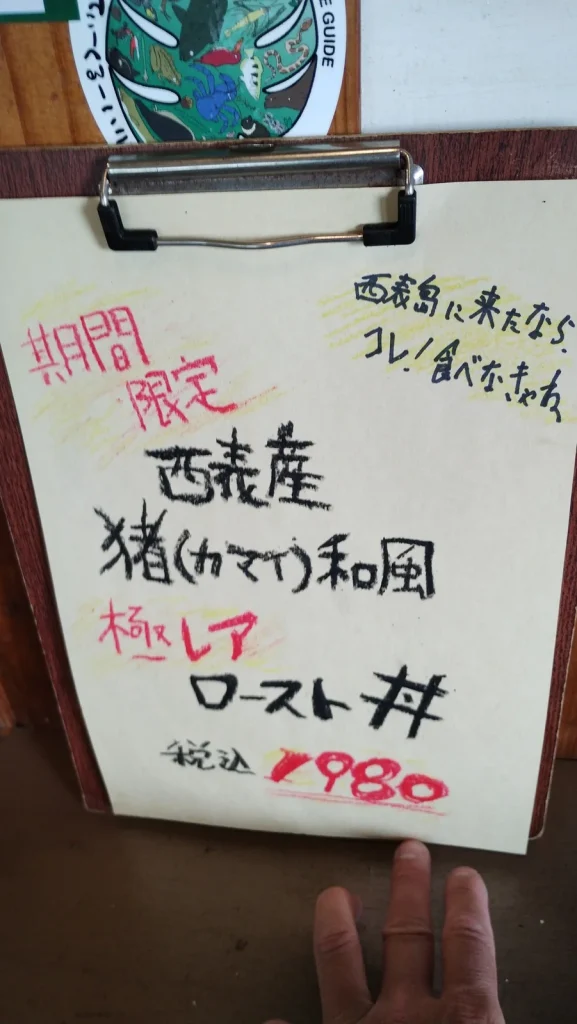 E GUIDE
西表島に来たなら
コレ!食べなきゃね
期間
限定
西表産
猪(カマイ)和風
極レア
ロースト丼
税込 1980